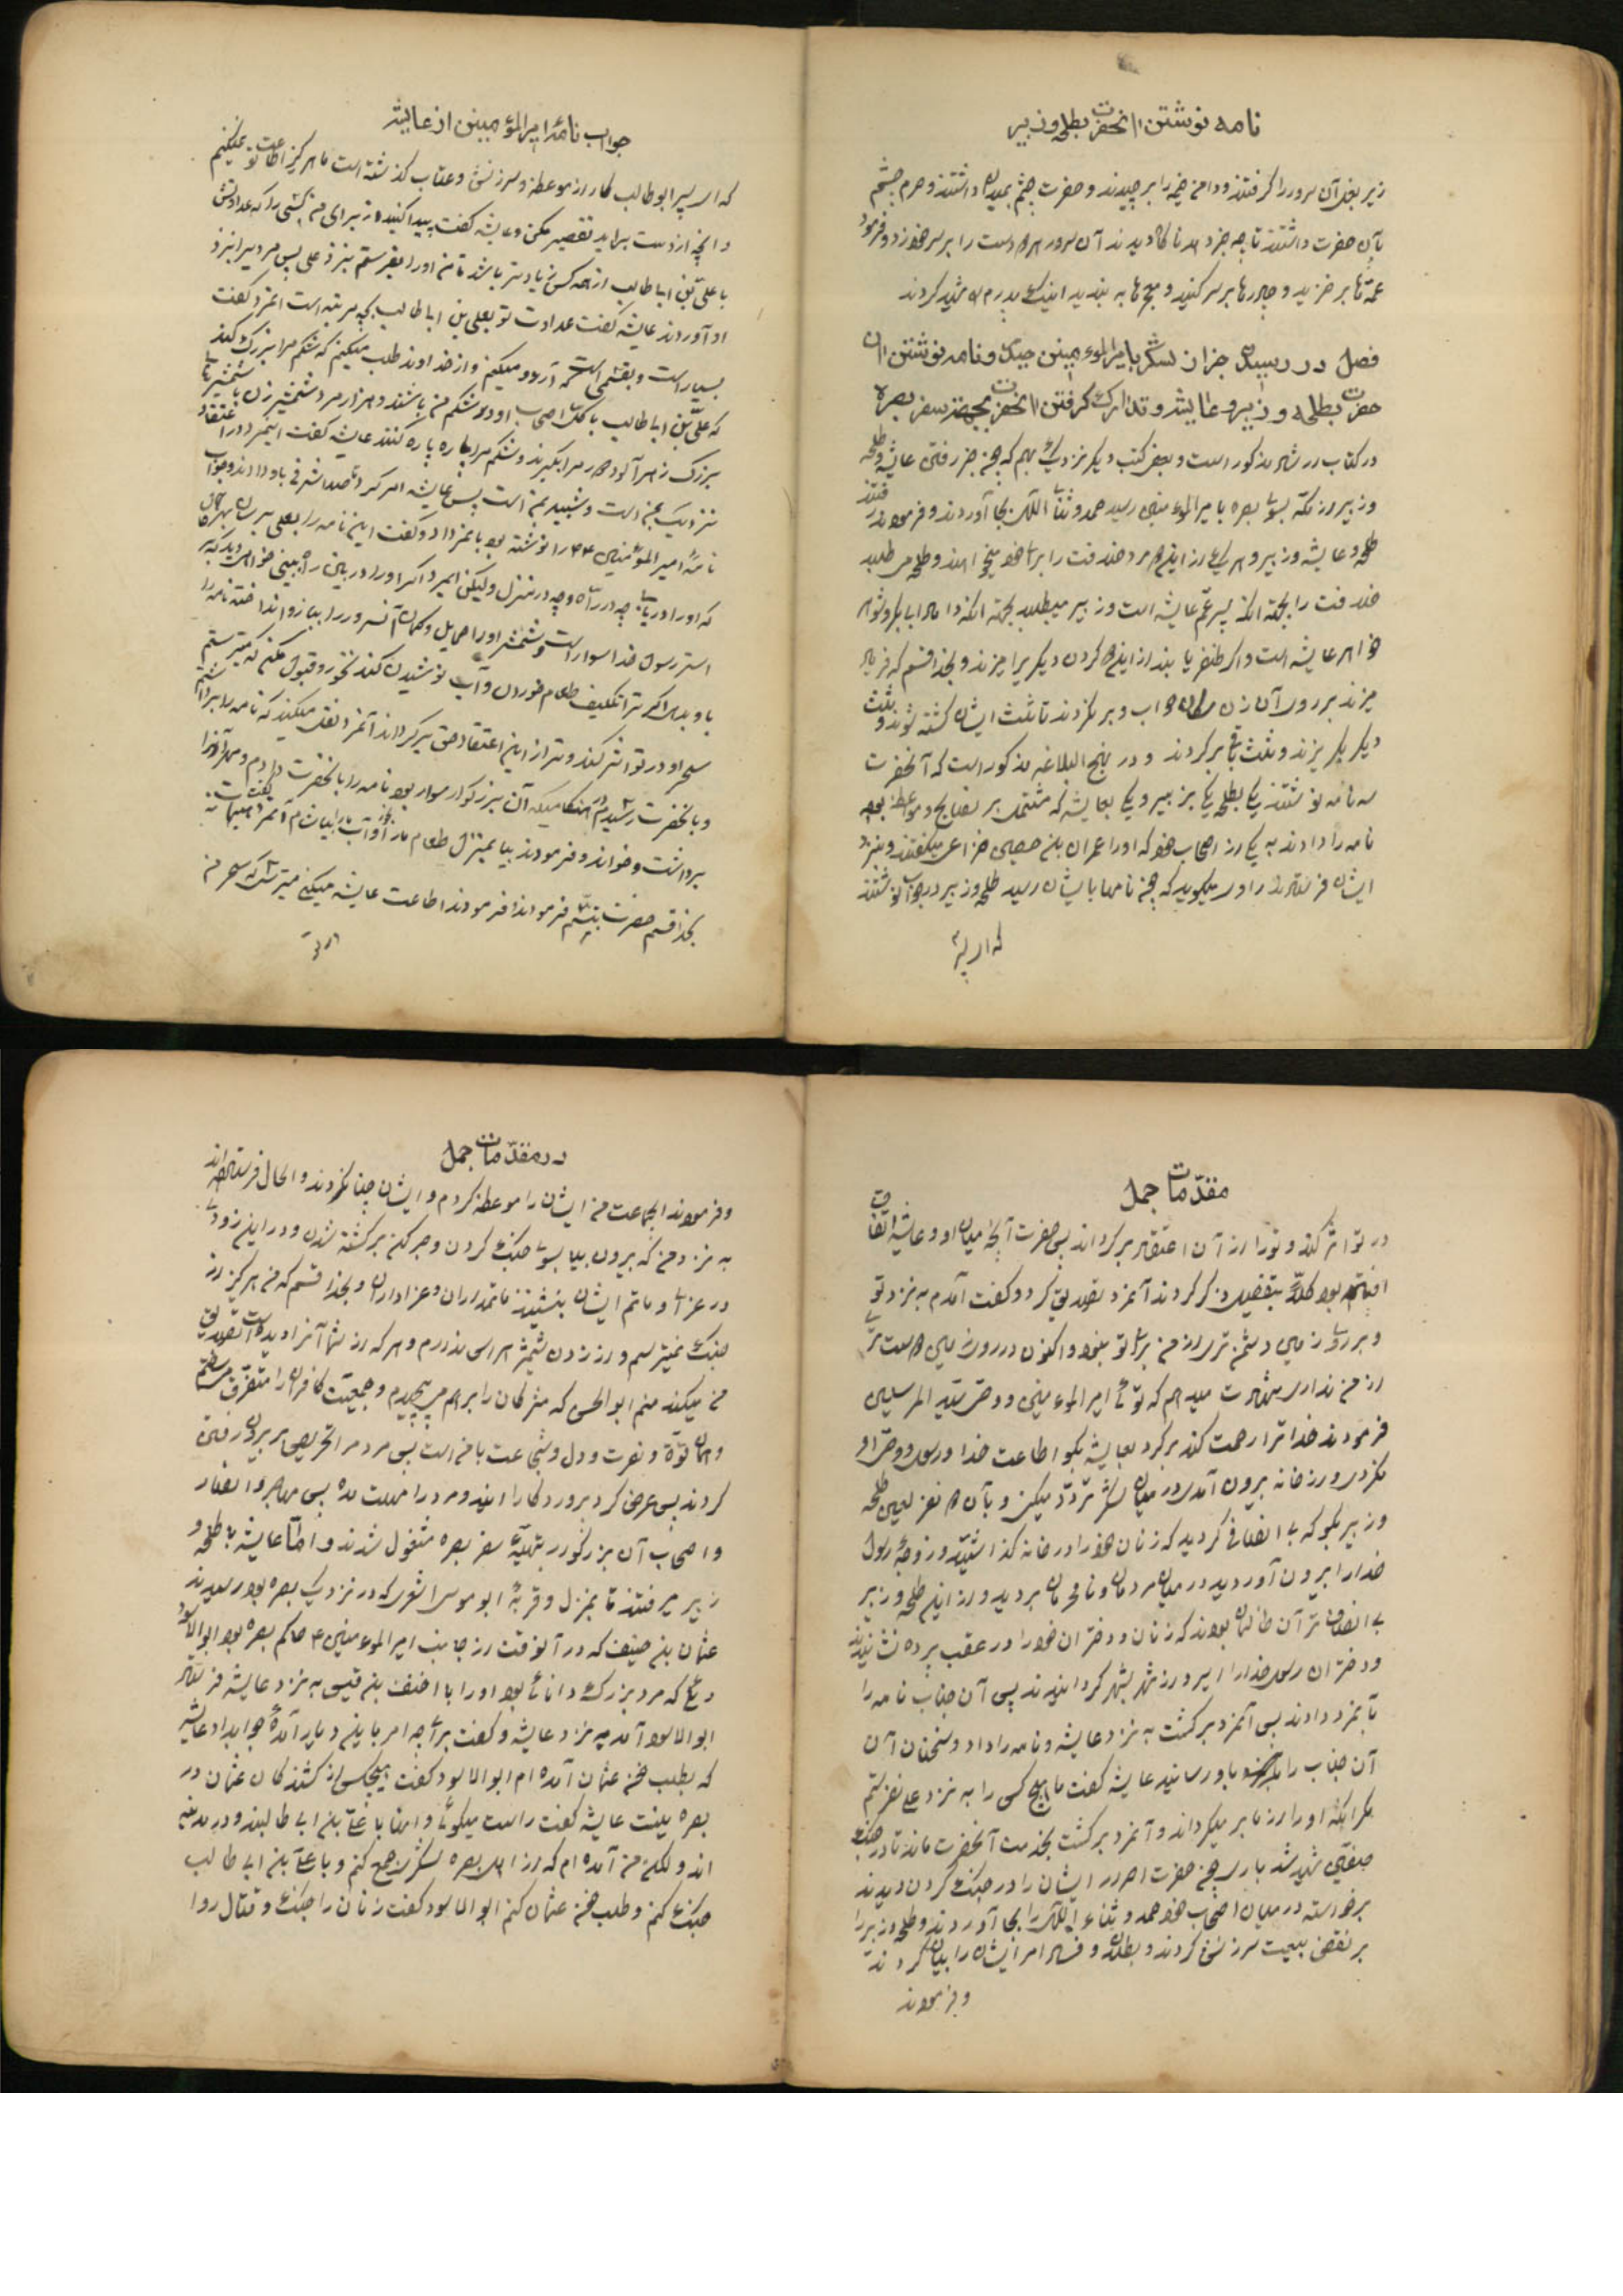 نامه نوشتن آنحضرت بطلحه و زبیر
زیر بغل آن سرور را گرفتند و دامن خیمه را برچیدند و حضرت چشم بمیدان داشتند و حرم چشم
بآن حضرت داشتند تا چه خبر دهد ناگاه دیدند آن سرور هر دو دست را بر سر خود زد و فرمود
عمّه‌ها برخیزید و چادرها بر سر کنید و مچ‌ها به بندید اینک پدرم را شهید کردند
فصل در رسیدن خبر آن لشکر بامیرالمؤمنین و نامه نوشتن آن
حضرت بطلحه و زبیر و عایشه و تدارک گرفتن آنحضرت بجهة سفر بصره
در کتاب مذکور است و بعض کتب دیگر نزدیک بهم که چون خبر رفتن عایشه و طلحه
و زبیر از مکه بسوی بصره بامیرالمؤمنین رسید حمد و ثنای الهی بجا آوردند و فرمودند رفتند
طلحه و عایشه و زبیر و هر یک از این دو مرد خلافت را برای خود میخواهند و طلحه می طلبد
خلافت را بجهة آنکه پسر عمّ عایشه است و زبیر میطلبد بجهة آنکه داماد ابابکر و شوهر
خواهر عایشه است و اگر ظفر یابند از این دو گردن دیگری را میزند و بخدا قسم که فریاد
میزند بر روی آن زن سگان حواب و برنگردند تا ثلث ایشان کشته شوند و ثلث
دیگر بگریزند و ثلث باقی برگردند و در نهج البلاغه مذکور است که آنحضرت
سه نامه نوشتند یکی بطلحه یکی بزبیر و یکی بعایشه که مشتمل بر نصایح و مواعظ بود
نامه را دادند به یکی از اصحاب خود که او را عمران بن حصین خزاعی میگفتند و بنزد
ایشان فرستادند راوی میگوید که چون نامها بایشان رسید طلحه و زبیر در جواب نوشتند
که ای پسر
جواب نامه امیرالمؤمنین از عایشه
که ای پسر ابوطالب کار از موعظه و سرزنش و عتاب گذشته است ما هرگز اطاعت تو نمیکنیم
و آنچه از دست براید تقصیر مکن و عایشه گفت پیدا کنید از برای من کسی را که عداوتش
با علیّ بن ابیطالب از همه کس زیادتر باشد تا من او را بفرستم بنزد علی پس مردیرا بنزد
او آوردند عایشه گفت عداوت تو بعلی بن ابیطالب بچه مرتبه است آنمرد گفت
بسیار است و بقسمی است که آرزو میکنم و از خداوند طلب میکنم که شکم مرا بزرگ کند
که علیّ بن ابیطالب با اصحاب او در شکم من باشند و هزار مرد شمشیرزن با شمشیرهای
بزرگ زهرآلود دور مرا بگیرند و شکم مرا پاره پاره کنند عایشه گفت اینمرد در اعتقاد
نزدیک بمن است و شبیه بمن است پس عایشه امر کرد تا صد اشرفی باو دادند و جواب
نامهٔ امیرالمؤمنین را نوشته بود بآنمرد داد و گفت این نامه را بعلی برسان بهر حال
که او را دریابی چه در راه و چه در منزل ولیکن ایمرد اگر او را در بین راه بینی خواهی دید که بر
استر رسول خدا سوار است و شمشیر او را حمایل و کمان آنسرور را ببازو انداخته نامه را
باو بده اگر ترا تکلیف طعام خوردن و آب نوشیدن کند نخور و قبول مکن که میترسم
سحر او در تو اثر کند و ترا از این اعتقاد حق برگرداند آنمرد نقل میکند که نامه را برداشتم
و بآنحضرت رسیدم در هنگامیکه آن بزرگوار سوار بود نامه را بآنحضرت دادم و مهر آنرا
برداشت و خواند و فرمودند بیا بمنزل طعام ما را بخور و آب ما را بیاشام آنمرد گفت
بخدا قسم حضرت تبسّم فرمودند فرمودند اطاعت عایشه میکنی میترسی که سحر من
در تو
مقدّمات جمل
در تو اثر کند و تو را از آن اعتقاد برگرداند پس حضرت آنچه میان او و عایشه اتفاق
افتاده بود کلاً بتفصیل ذکر کردند آنمرد تصدیق کرد و گفت آمدم به نزد تو
و بر روی زمین دشمن‌تری از من برای تو نبود و اکنون در روی زمین دوست‌تری
از من نداری شهادت میدهم که توئی امیرالمؤمنین و وصی سیّد المرسلین
فرمودند خدا ترا رحمت کند برگرد بعایشه بگو اطاعت خدا و رسول و وصی او
نکردی و از خانه بیرون آمدی در میان لشکر تردّد میکنی و بآن دو نفر یعنی طلحه
و زبیر بگو که بی انصافی کردید که زنان خود را در خانه گذاشتید و زوجهٔ رسول
خدا را بیرون آوردید در میان مردمان و نامحرمان بردید و از این طلحه و زبیر
بی انصاف‌تر آن ظالمان بودند که زنان و دختران خود را در عقب پرده نشانیدند
و دختران رسول خدا را اسیر و از شهر بشهر گردانیدند پس آن جناب نامه را
بآنمرد دادند پس آنمرد برگشت به نزد عایشه و نامه را داد و سخنان آن
آن جناب را باو رسانید عایشه گفت ما هیچ کس را به نزد علی نفرستیم
مگر آنکه او را از ما بر میگرداند و آنمرد برگشت بخدمت آنحضرت ماند تا در جنگ
صفّین شهید شد باری چون حضرت اصرار ایشان را در جنگ کردن دیدند
برخواسته در میان اصحاب خود حمد و ثناء الهی را بجا آوردند و طلحه و زبیر را
بر نقض بیعت سرزنش کردند و بطلان و فساد امر ایشان را بیان کردند
و فرمودند
در مقدّمات جمل
و فرمودند ایجماعت من ایشان را موعظه کردم و ایشان حیا نکردند و الحال فرستاده‌اند
به نزد من که بیرون بیا بسوی جنگ کردن و صبر کن بر کشته شدن و در این زودی
در عزا و ماتم ایشان بنشینند ماتمداران و عزاداران و بخدا قسم که من هرگز از
جنگ نمیترسم و از زدن شمشیر هراسی ندارم و هر که از شما آنرا دیده است تصدیق
من میکند منم ابوالحسن که مشرکان را برهم می پیچیدم و جمعیّت کافران را متفرق میساختم
و همان قوّة و نصرت و دل و شجاعت با من است پس مردم را تحریص بر بیرون رفتن
کردند پس عرض کرد پروردگارا این دو مرد را مهلت مده پس مهاجر و انصار
و اصحاب آن بزرگوار بتهیّهٔ سفر بصره مشغول شدند و امّا عایشه با طلحه و
زبیر میرفتند تا بمنزل و قریهٔ ابو موسی اشعری که در نزدیک بصره بود رسیدند
عثمان بن حنیف که در آنوقت از جانب امیرالمؤمنین ع حاکم بصره بود ابوالاسود
دئلی که مرد بزرگ و دانائی بود او را با احنف بن قیس به نزد عایشه فرستاد
ابوالاسود آمد به نزد عایشه و گفت برای چه امر باین دیار آمدهٔ جواب داد عایشه
که بطلب خون عثمان آمده‌ام ابوالاسود گفت هیچکس از کشندکان عثمان در
بصره نیست عایشه گفت راست میگوئی و آنها با علیّ بن ابی طالبند و در مدینه
اند ولکن من آمده‌ام که از اهل بصره لشکر جمع کنم و با علیّ بن ابی طالب
جنگ کنم و طلب خون عثمان کنم ابوالاسود گفت زنان را جنگ و قتال روا